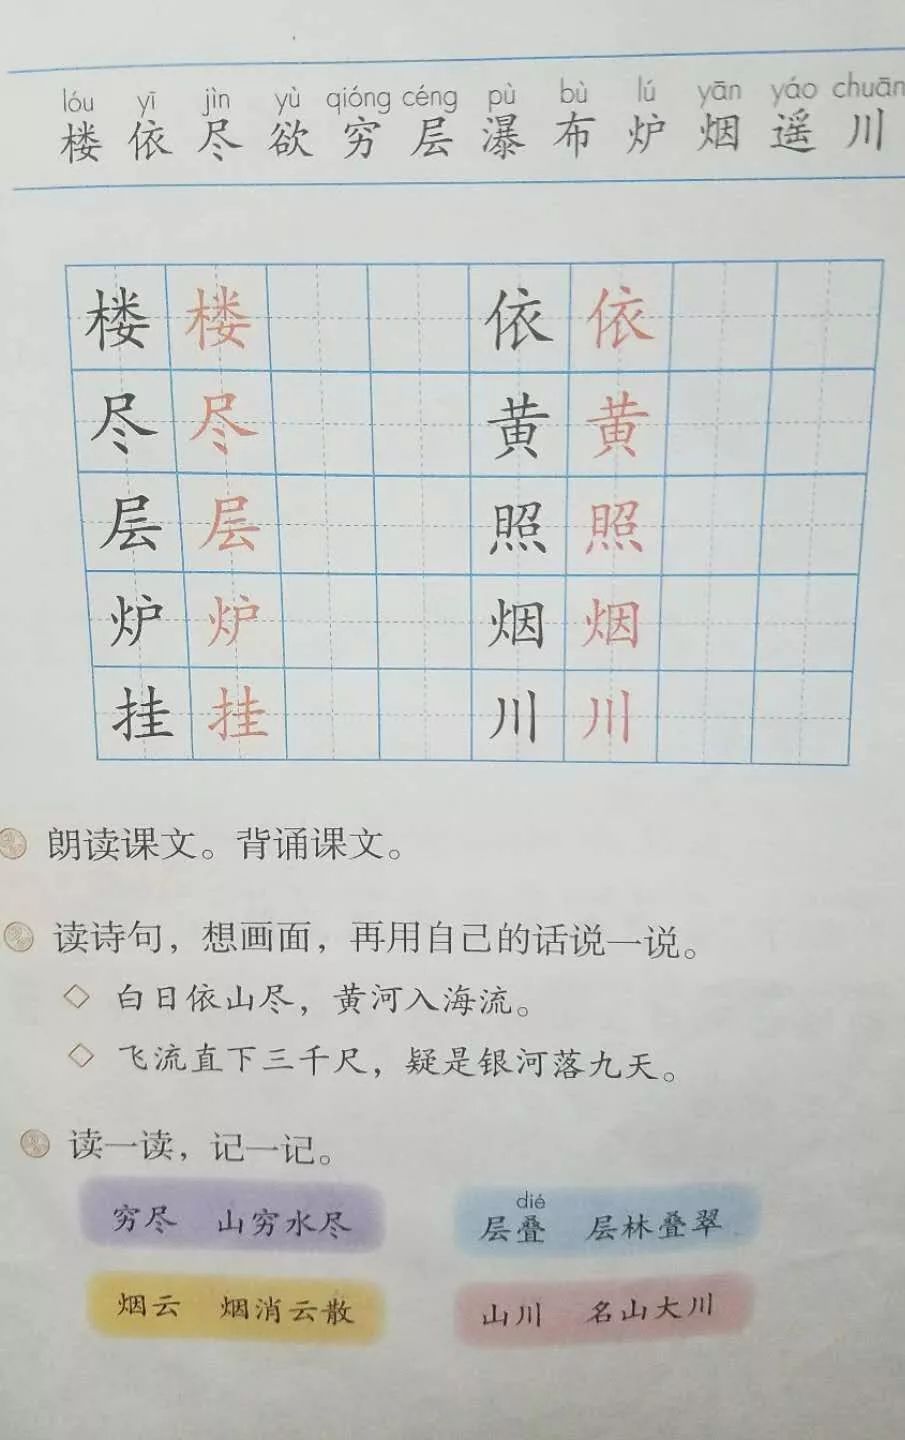 lóu yī jìn yù qióng céng pù bù lú yān yáo chuān
楼 依 尽 欲 穷 层 瀑 布 炉 烟 遥 川
楼 楼 依 依
尽 尽 黄 黄
层 层 照 照
炉 炉 烟 烟
挂 挂 川 川
朗读课文。背诵课文。
读诗句，想画面，再用自己的话说一说。
◇ 白日依山尽，黄河入海流。
◇ 飞流直下三千尺，疑是银河落九天。
读一读，记一记。
dié
穷尽 山穷水尽 层叠 层林叠翠
烟云 烟消云散 山川 名山大川